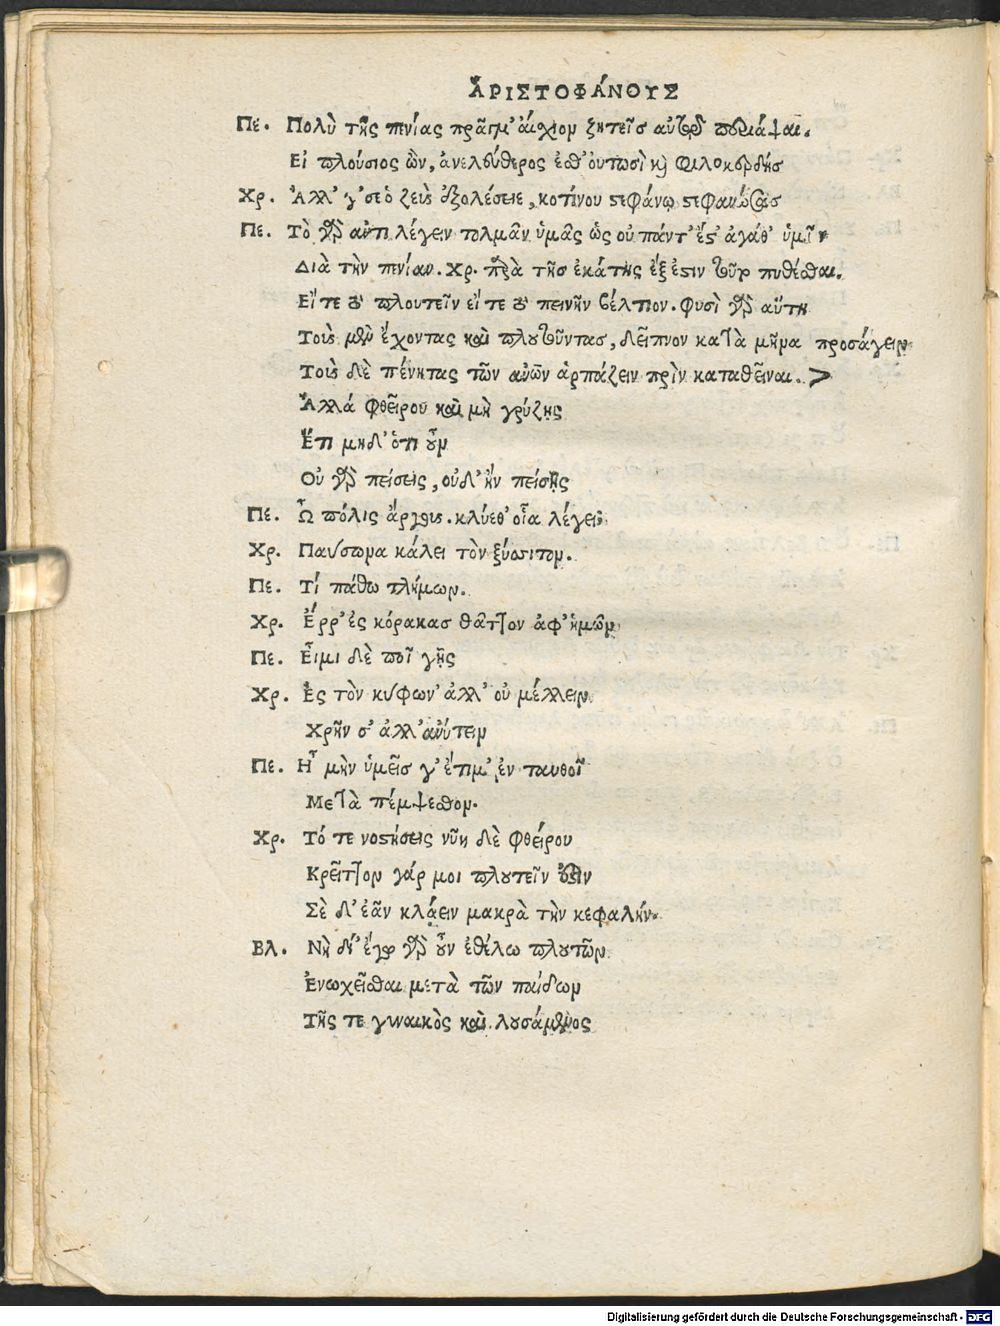 ἈΡΙΣΤΟΦΆΝΟΥΣ
Πε. Πολὺ τῆς πενίας πρᾶγμ' αἴσχιον ζητεῖς αὐτῷ περιάψαι.
Εἰ πλούσιος ὢν, ἀνελεύθερος ἐσθ' οὑτωσὶ καὶ φιλοκερδής
Χρ. Ἀλλ' γ' σε ὁ ζεὺς ἐξολέσειε, κοτίνου στεφάνῳ στεφανώσας
Πε. Τὸ γὰρ ἀντιλέγειν τολμᾶν ὑμᾶς ὡς οὐ πάντ' ἔστ' ἀγάθ' ὑμῖν
Διὰ τὴν πενίαν. Χρ. παρὰ τῆς ἑκάτης ἔξεστιν τοῦτο πυθέσθαι.
Εἴτε τὸ πλουτεῖν εἴτε τὸ πεινῆν βέλτιον. φησὶ γὰρ αὕτη
Τοὺς μὲν ἔχοντας καὶ πλουτοῦντας, δεῖπνον κατὰ μῆνα προσάγειν
Τοὺς δὲ πένητας τῶν ἀνῶν ἁρπάζειν πρὶν καταθεῖναι.
Ἀλλά φθείρου καὶ μὴ γρύζῃς
Ἔτι μηδ' ὁτιοῦν
Οὐ γὰρ πείσεις, οὐδ' ἢν πείσῃς
Πε. Ὦ πόλις ἄργους. κλύεθ' οἷα λέγει
Χρ. Παύσωνα κάλει τὸν ξύσσιτον.
Πε. Τί πάθω τλήμων.
Χρ. Ἔρρ' ἐς κόρακας θᾶττον ἀφ' ἡμῶν
Πε. Εἶμι δὲ ποῖ γῆς
Χρ. Ἐς τὸν κύφων' ἀλλ' οὐ μέλλειν
Χρῆν σ' ἀλλ' ἀνύτειν
Πε. Ἦ μὴν ὑμεῖς γ' ἔτι μ' ἐνταυθοῖ
Μετὰ πέμψεσθον.
Χρ. Τό τε νοστήσεις νῦν δὲ φθείρου
Κρεῖττον γάρ μοι πλουτεῖν ἐστὶν
Σὲ δ' ἐᾶν κλάειν μακρὰ τὴν κεφαλήν.
Βλ. Νὴ δί' ἔγωγ' οὖν ἐθέλω πλουτῶν
Ἐυωχεῖσθαι μετὰ τῶν παίδων
Τῆς τε γυναικὸς καὶ λουσάμενος
Digitalisierung gefördert durch die Deutsche Forschungsgemeinschaft - DFG